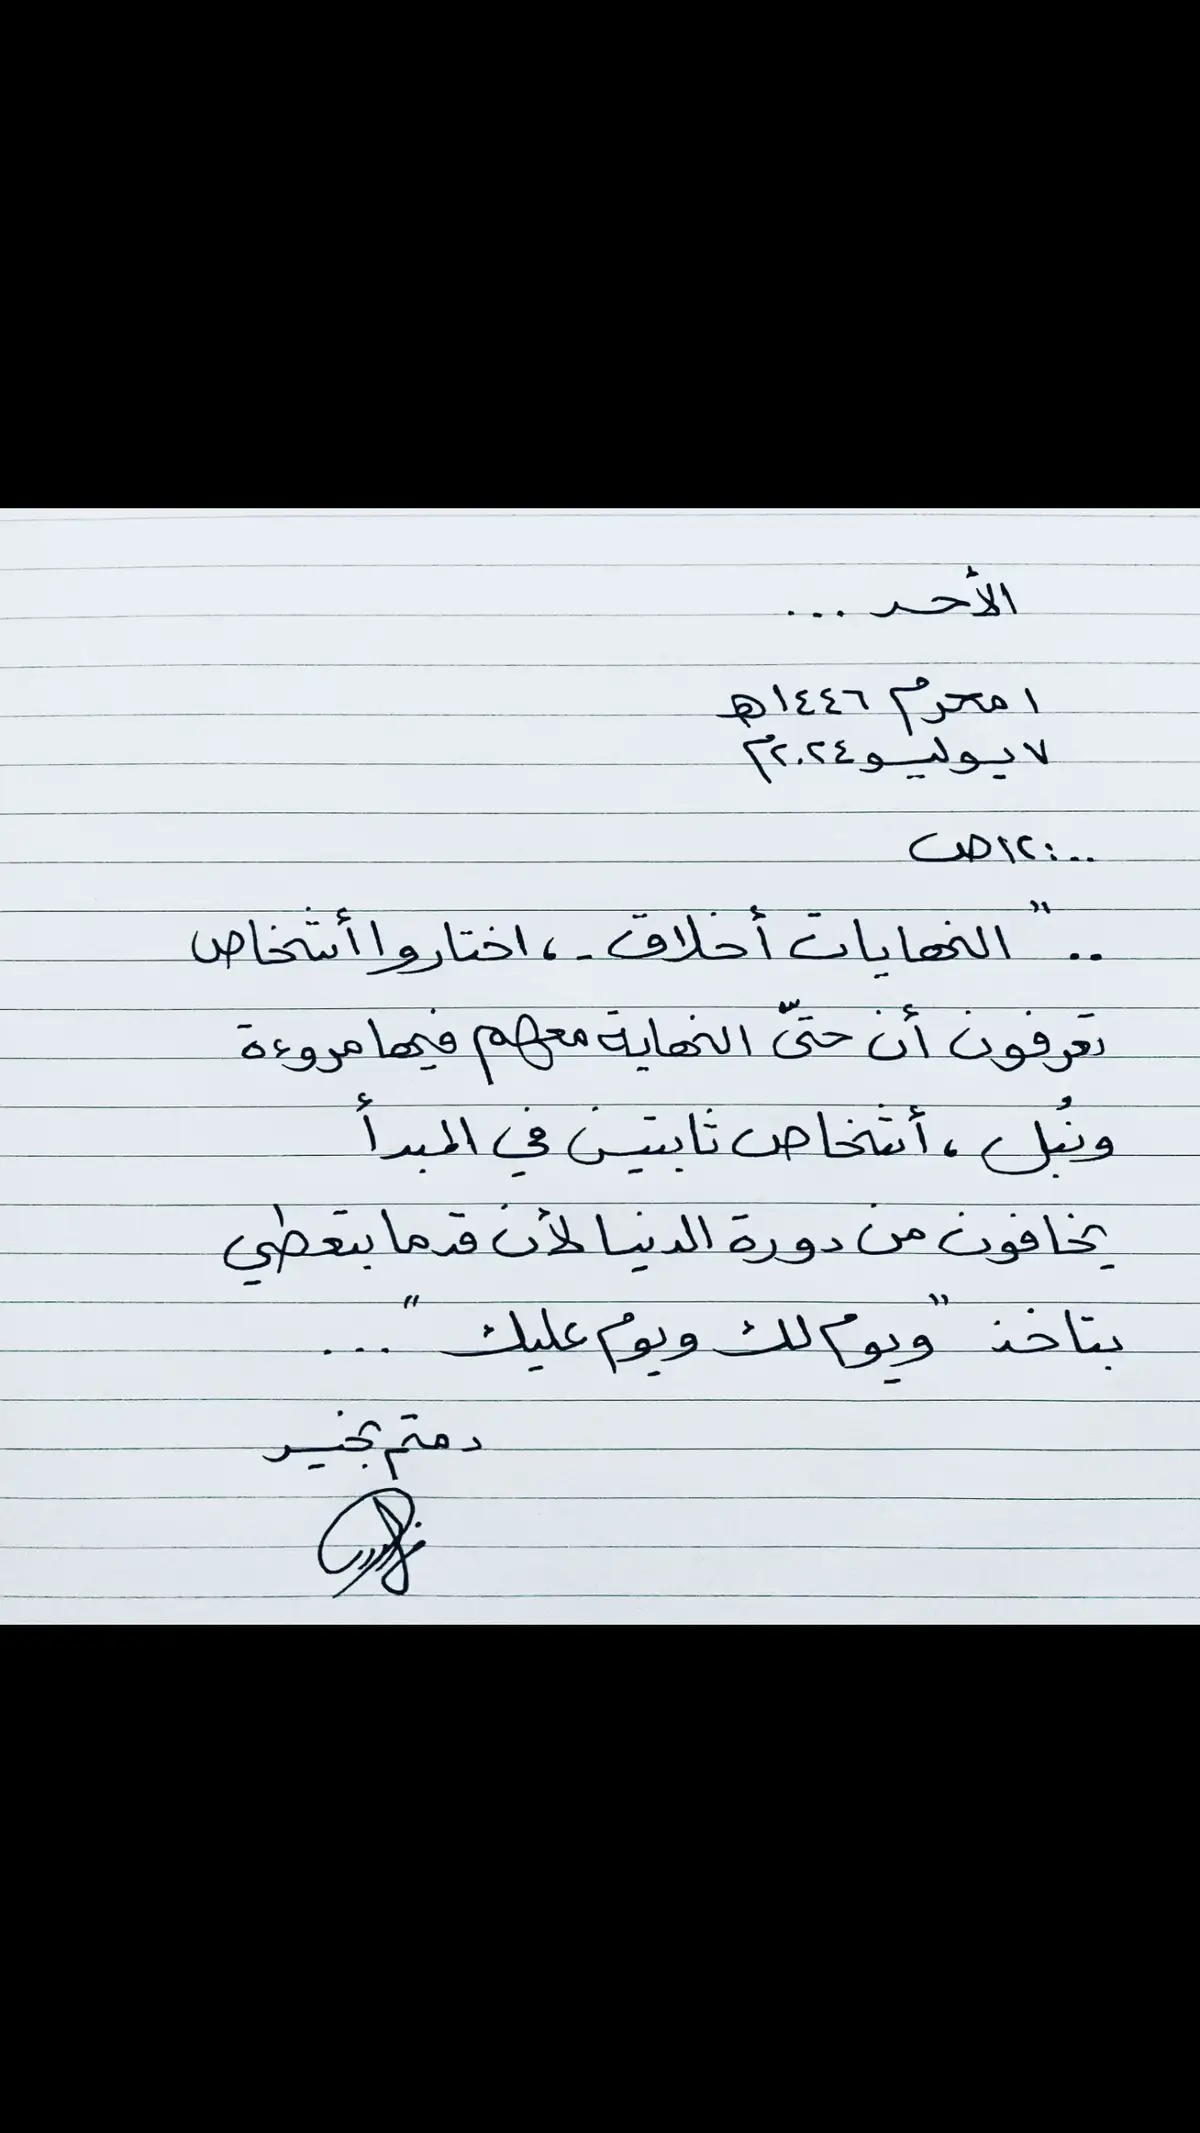 الأحد ...
١ محرم ١٤٤٦هـ
٧ يوليو ٢٠٢٤م
١٢:٠٠ص
.. " النهايات أخلاق - ، اختاروا أشخاص
تعرفون أن حتىّ النهاية معهم فيها مروءة
ونُبل ، أشخاص ثابتين في المبدأ
يخافون من دورة الدنيا لأن قدما بتعطي
بتاخذ " ويوم لك ويوم عليك " ...
دمتم بخير